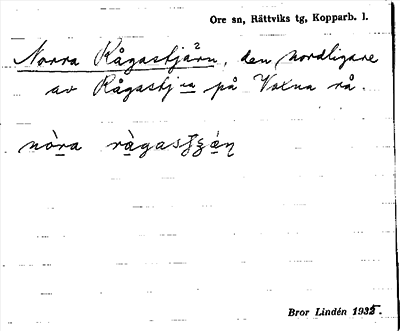 Ore sn, Rättviks tg, Kopparb. l.
Norra Rågastjärn, den nordligare
av Rågastj na på Voxna rå.
nòra rågas
Bror Lindén 1935.